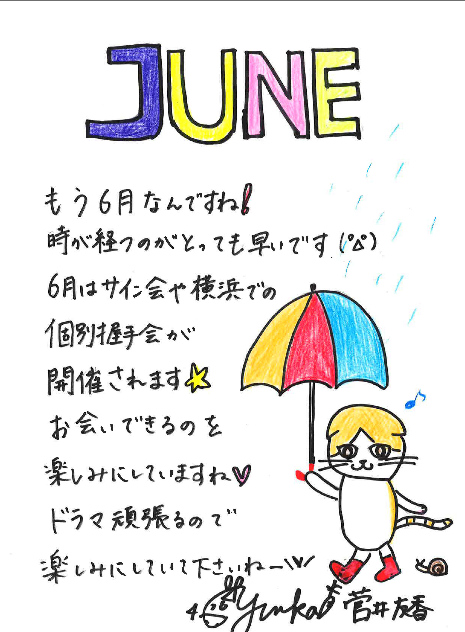 JUNE
もう6月なんですね!
時が経つのがとっても早いです(°Δ°)
6月はサイン会や横浜での
個別握手会が
開催されます☆
お会いできるのを
楽しみにしていますね♡
ドラマ頑張るので
楽しみにしていて下さいねー\♡/
Yuuka 菅井友香